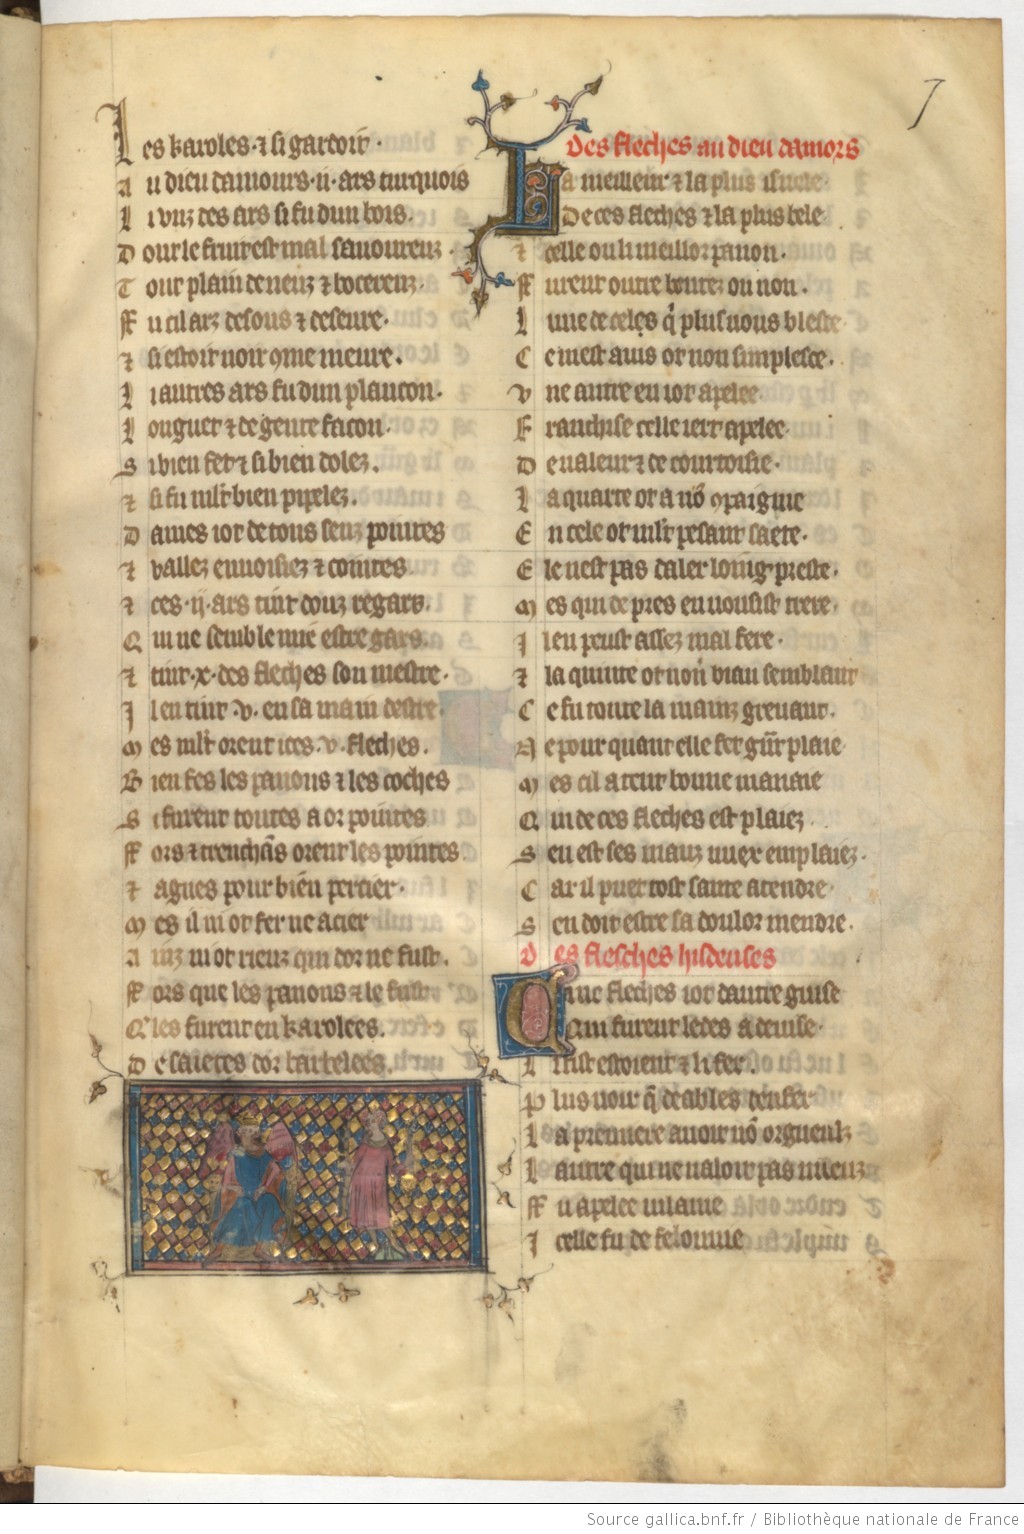 7
Les karoles ⁊ si gardoit
Au dieu damours .ii. ars turquois
Li vnz des ars si fu dun bois
Dont le fruit est mal sauourenz
Tout plain de neuz ⁊ bocerenz
Ffu cil arz desous ⁊ deseure
⁊ si estoit noir 9me meure
Li autres ars fu dun plancon
Longuet ⁊ de gente facon
Si bien fet ⁊ si bien dolez
⁊ si fu mlt bien pipelez
Dames iot de tous senz pointes
⁊ vallez enuoisiez ⁊ cointes
⁊ ces .ii. ars tint douz regars
Qui ne semble mie estre gars
⁊ tint .x. des fleches son mestre
Il en tint .v. en sa main destre
Mes mlt orent ices .v. fleches
Bien fes les panons ⁊ les coches
Si furent toutes a or pointes
Ffors ⁊ trenchãs orent les pointes
⁊ agues pour bien percier
Mes il ni ot fer ne acier
Ainz ni ot rienz qui dor ne fust
Ffors que les panons ⁊ le fust
Q'les furent en karolees
De saietes dor barbelees
Des fleches au dieu damors
La meilleur ⁊ la plus isnele
De ces fleches ⁊ la plus bele
⁊ celle ou li meillor panon
Ffurent outre boutez ou non
Lune de celes q̃ plus nous blesce
Ce mest auis ot non simplesce
Vne autre en iot apelee
Franchise celle iert apelee
De ualeur ⁊ de courtoisie
La quarte ot a nõ 9paignie
En cele ot mlt pesant saete
Ele nest pas daler loing preste
Mes qui de pres en uousist trere
Il en peust assez mal fere
⁊ la quinte ot non biau semblant
Ce fu toute la mainz greuant
Ne pour quant elle fet gñt plaie
Mes cil atent bonne manaie
Qui de ces fleches est plaiez
Seu est ses mauz miex emplaiez
Car il puet tost sante atendre
Seu doit estre sa doulor mendre
Des flesches hisdeuses
Cinc fleches iot dautre guise
Qui furent ledes a deuise
Li fust estoient ⁊ li fer
Plus noir q̃ deables denfer
La premiere auoit nõ orgueulz
Lautre qui ne ualoit pas mieuz
Ffu apelee uilanie
Icelle fu de felonnie
Source gallica.bnf.fr / Bibliothèque nationale de France